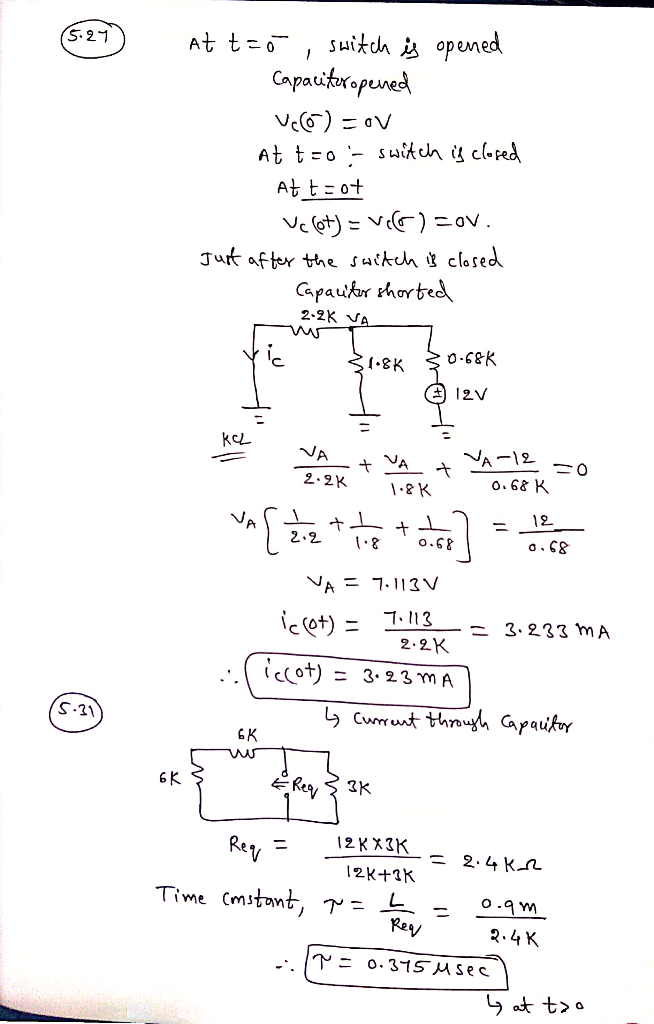 5.27
At t=0⁻, switch is opened
Capacitor opened
Vc(0⁻) = 0V
At t=0 :- switch is closed
At t=0+
Vc(0+) = Vc(0⁻) = 0V.
Just after the switch is closed
Capacitor shorted
2.2K VA
ic 1.8K 0.68K
12V
KCL
VA/2.2K + VA/1.8K + (VA-12)/0.68K = 0
VA [1/2.2 + 1/1.8 + 1/0.68] = 12/0.68
VA = 7.113V
ic(0+) = 7.113/2.2K = 3.233 mA
∴ ic(0+) = 3.23mA
↳ Current through Capacitor
5.31
6K
6K ⇐ Req 3K
Req = 12K×3K/12K+3K = 2.4KΩ
Time constant, τ = L/Req = 0.9m/2.4K
∴ τ = 0.375 μsec
↳ at t>0